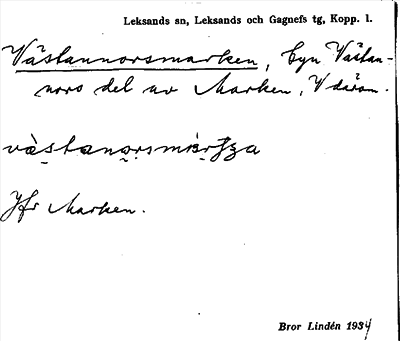 Leksands sn, Leksands och Gagnefs tg, Kopp. l.
Västannorsmarken, byn Västan-
nors del av Marken, V därom.
Jfr Marken.
Bror Lindén 1934